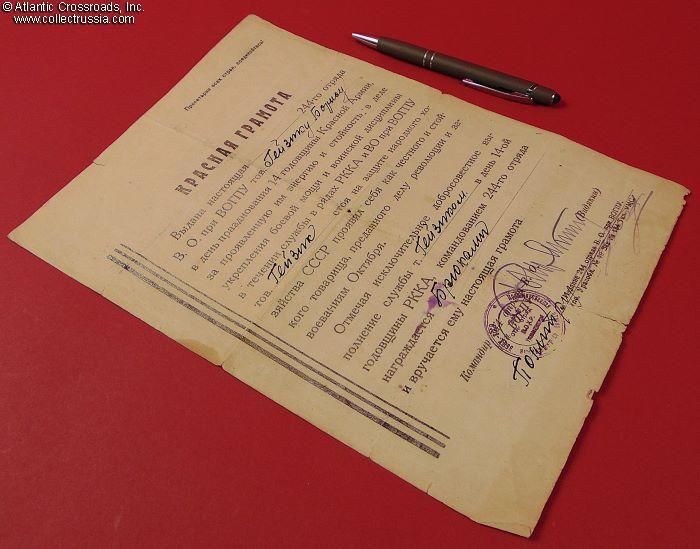 © Atlantic Crossroads, Inc.
www.collectrussia.com
Пролетарии всех стран, соединяйтесь!
КРАСНАЯ ГРАМОТА
Выдана настоящая 244-го отряда
В. О. при ВОГПУ тов. Гейзику Борису
в день празднования 14 годовщины Красной Армии,
за проявленную им энергию и стойкость, в деле
укрепления боевой мощи и воинской дисциплины
в течении службы в рядах РККА и ВО при ВОГПУ
тов. Гейзик стоя на защите народного хо-
зяйства СССР проявил себя как честного и стой-
кого товарища, преданного делу революции и за-
воеваниям Октября.
Отмечая исключительное добросовестное вы-
полнение службы т. Гейзиком в день 14-ой
годовщины РККА, командованием 244-го отряда
награждается
и вручается ему настоящая грамота
Командир